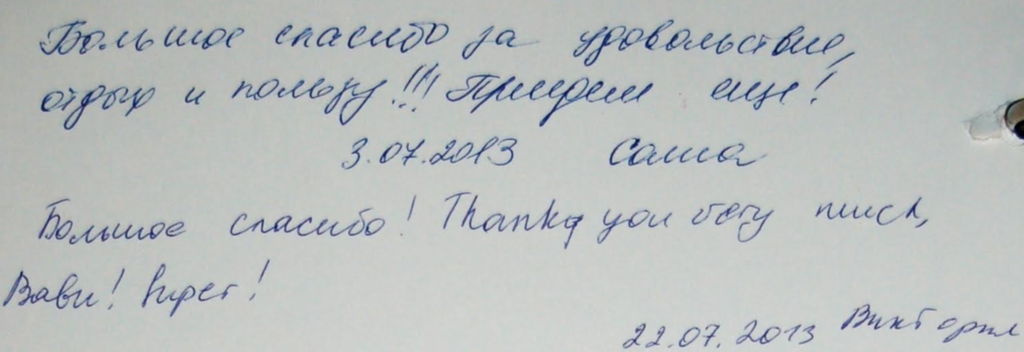 Большое спасибо за удовольствие,
отдых и пользу!!! Приедем еще!
3.07.2013 Саша
Большое спасибо! Thank you very much,
Вави!
22.07.2013 Виктория